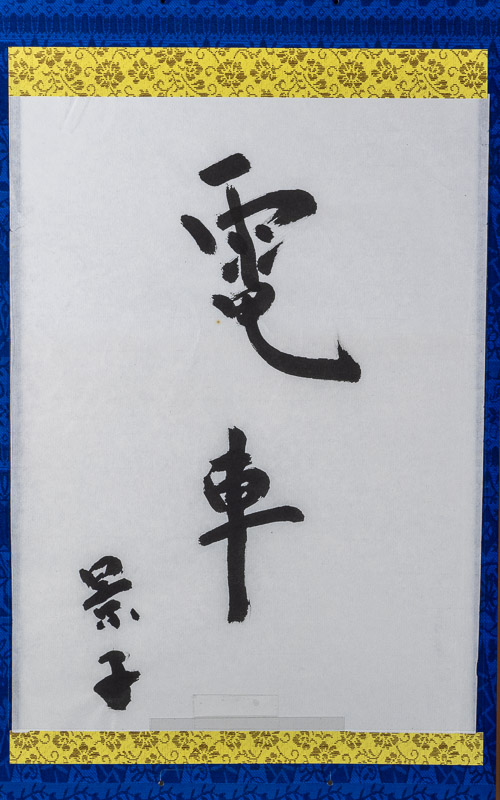 電車
景子